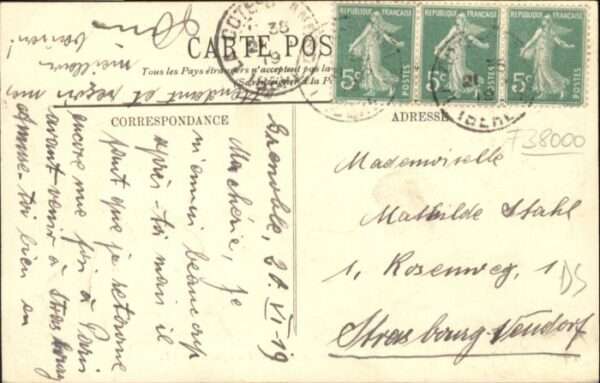 CARTE POS
Tous les Pays étrangers n'acceptent pas la
CORRESPONDANCE
Grenoble, 20 VI-19
Ma chérie, je
m'ennui beaucoup
après-toi mais il
faut que je retourne
encore une fois à Paris
avant venir à Strasbourg
Amuse-toi bien en
attendant et reçois un
meilleur
baiser!
ADRESSE
F38000
Mademoiselle
Mathilde Stahl
1, Rosenweg, 1
DS
Strasbourg-Neudorf
REPUBLIQUE FRANÇAISE
5c POSTES
REPUBLIQUE FRANÇAISE
5c POSTES
REPUBLIQUE FRANÇAISE
5c POSTES